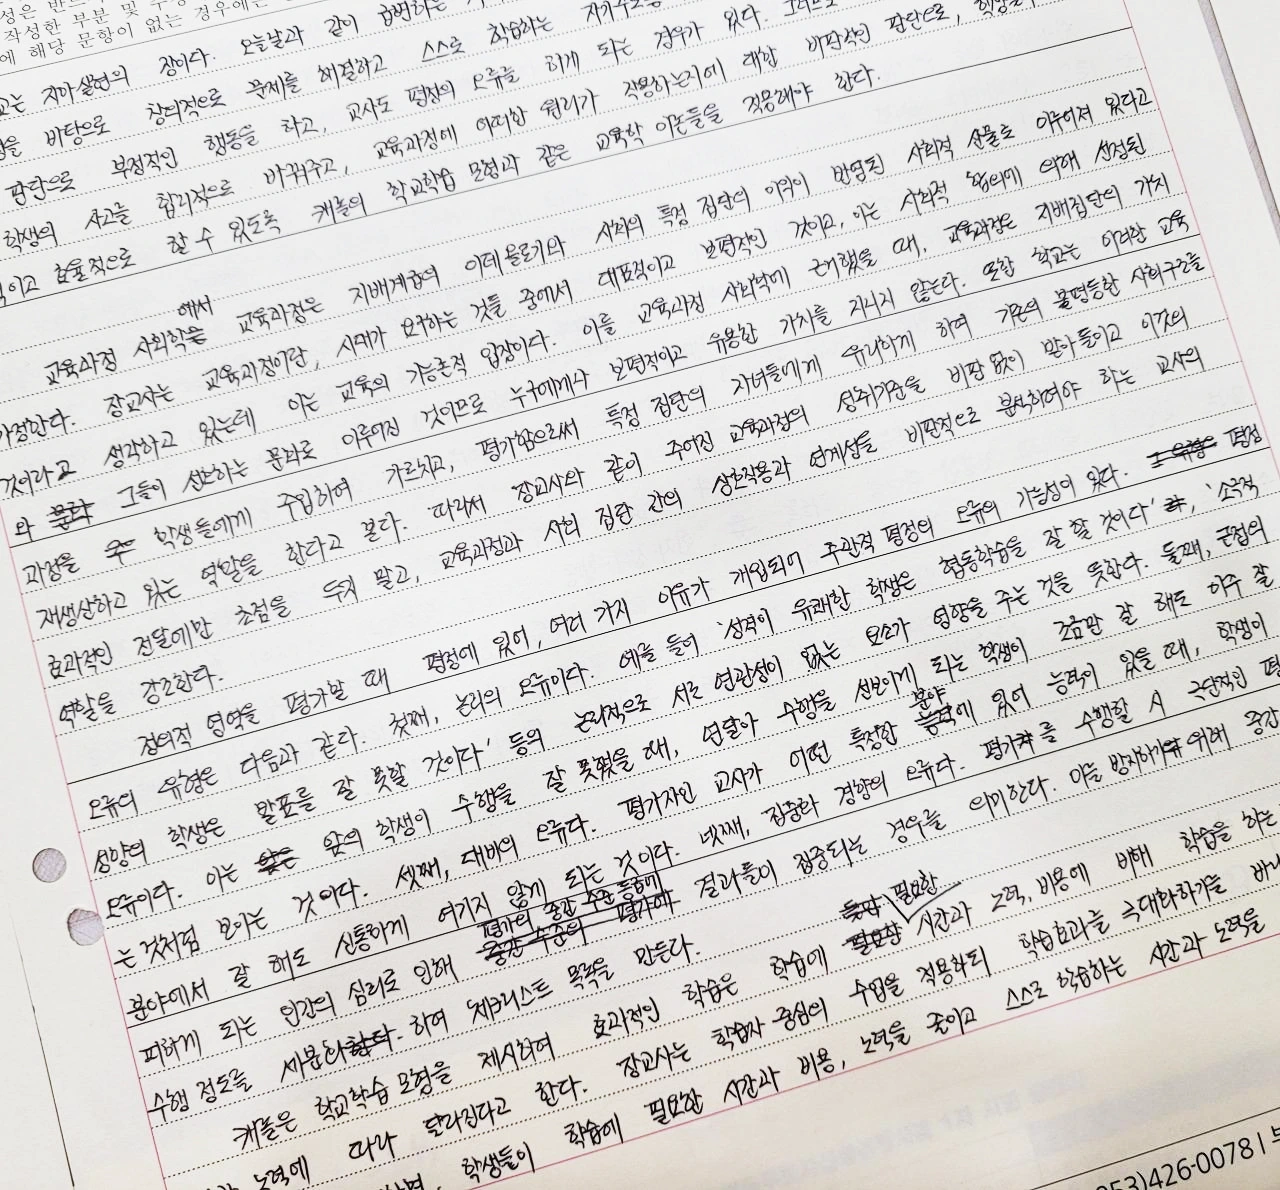 성은 반드
작성한 부분 및 수정
에 해당 문항이 없는 경우에는
교는 자아실현의 장이다. 오늘날과 같이 급변하는
을 바탕으로 창의적으로 문제를 해결하고 스스로 학습하는 자기주도
판단으로 부정적인 행동을 하고, 교사도 평정의 오류를 하게 되는 경우가 있다. 그러므로
학생의 사고를 합리적으로 바꿔주고, 교육과정에 어떠한 원리가 작용하는지에 대한 비판적인 판단으로,
이고 효율적으로 할 수 있도록 캐롤의 학교학습 모형과 같은 교육학 이론들을 적용해야 한다.
교육과정 사회학에서 교육과정은 지배계급의 이데올로기와 사회의 특정 집단의 이익이 반영된 사회적 산물로 이루어져 있다고
가정한다. 장교사는 교육과정이란, 시대가 요구하는 것들 중에서 대표적이고 보편적인 것이고, 이는 사회적 합의에 의해 선정된
것이라고 생각하고 있는데 이는 교육의 기능론적 입장이다. 이를 교육과정 사회학에 근거했을 때, 교육과정은 지배집단의 가치
와 그들이 선호하는 문화로 이루어진 것이므로 누구에게나 보편적이고 유용한 가치를 지니지 않는다. 또한 학교는 이러한 교육
과정을 학생들에게 주입하여 가르치고, 평가함으로써 특정 집단의 자녀들에게 유리하게 하여 기존의 불평등한 사회구조를
재생산하고 있는 역할을 한다고 본다. 따라서 장교사와 같이 주어진 교육과정의 성취기준을 비판 없이 받아들이고 이것의
효과적인 전달에만 초점을 두지 말고, 교육과정과 사회 집단 간의 상호작용과 연계성을 비판적으로 분석하여야 하는 교사의
역할을 강조한다.
정의적 영역을 평가할 때 평정에 있어, 여러 가지 이유가 개입되어 주관적 평정의 오류의 가능성이 있다. 평정
오류의 유형은 다음과 같다. 첫째, 논리의 오류이다. 예를 들어 '성격이 유쾌한 학생은 협동학습을 잘 할 것이다', '소극적
성향의 학생은 발표를 잘 못할 것이다' 등의 논리적으로 서로 연관성이 없는 요소가 영향을 주는 것을 뜻한다. 둘째, 근접의
오류이다. 이는 앞의 학생이 수행을 잘 못했을 때, 연달아 수행을 선보이게 되는 학생이 조금만 잘 해도 아주 잘
는 것처럼 보이는 것이다. 셋째, 대비의 오류다. 평가자인 교사가 어떤 특정한 분야에 있어 능력이 있을 때, 학생이
분야에서 잘 해도 신통하게 여기지 않게 되는 것이다. 넷째, 집중화 경향의 오류다. 평가를 수행할 시 극단적인 평
피하게 되는 인간의 심리로 인해 결과들이 집중되는 경우를 의미한다. 이를 방지하기 위해 중간
수행 정도를 세분화 하여 체크리스트 목록을 만든다.
캐롤은 학교학습 모형을 제시하여 효과적인 학습은 학습에 필요한 시간과 노력, 비용에 비해 학습을 하는
노력에 따라 달라진다고 한다. 장교사는 학습자 중심의 수업을 적용하되 학습효과를 극대화하기를
학생들이 학습에 필요한 시간과 비용, 노력을 줄이고 스스로 학습하는 시간과 노력을
053)426-0078 |